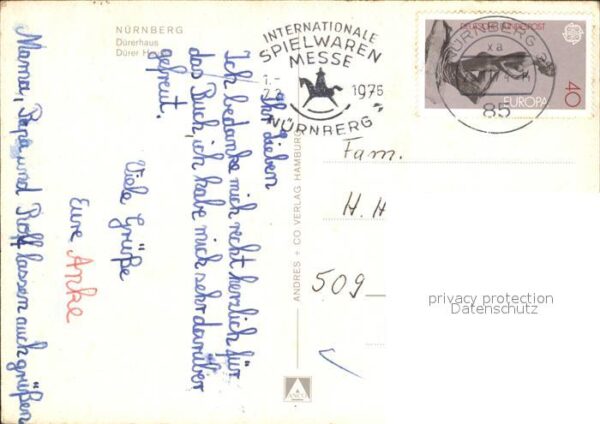 NÜRNBERG
Dürerhaus
Dürer H
Ihr lieben
Ich bedanke mich recht herzlich für
das Buch, ich habe mich sehr darüber
gefreut.
Viele Grüße
Eure Anke
Mama, Papa und Rolf lassen auch grüßen
ANDRES + CO VERLAG HAMBURG
INTERNATIONALE
SPIELWAREN
MESSE
1.-
1976
NÜRNBERG
DEUTSCHE BUNDESPOST
NÜRNBERG 2
xa
85
EUROPA
40
Fam.
H. H
509
privacy protection
Datenschutz